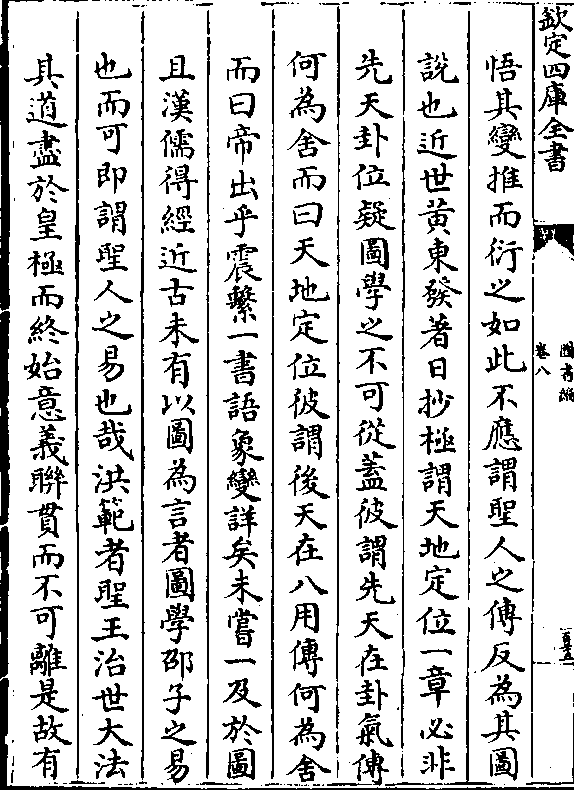 欽定四庫全書
圖書編
卷八
悟其變推而衍之如此不應謂聖人之傳反為其圖
說也近世黃東發著日抄極謂天地定位一章必非
先天卦位疑圖學之不可從蓋彼謂先天在卦氣傳
何為舍而曰天地定位彼謂後天在八用傳何為舍
而曰帝出乎震繫一書語象變詳矣未嘗一及於圖
且漢儒得經近古未有以圖為言者圖學邵子之易
也而可即謂聖人之易也哉洪範者聖王治世大法
其道盡於皇極而終始意義聯貫而不可離是故有